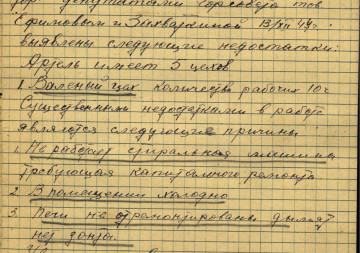 депутатами Горсовета тов
Ефимовым и 13/XII 47 г.
выявлены следующие недостатки:
Артель имеет 5 цехов
1. Валеный цех количество рабочих 10 ч
Существенными недостатками в работе
являются следующие причины
1. Не работает стиральная машина
требующая капитального ремонта
2. В помещении холодно
3. Печи не отремонтированы дымят
нет